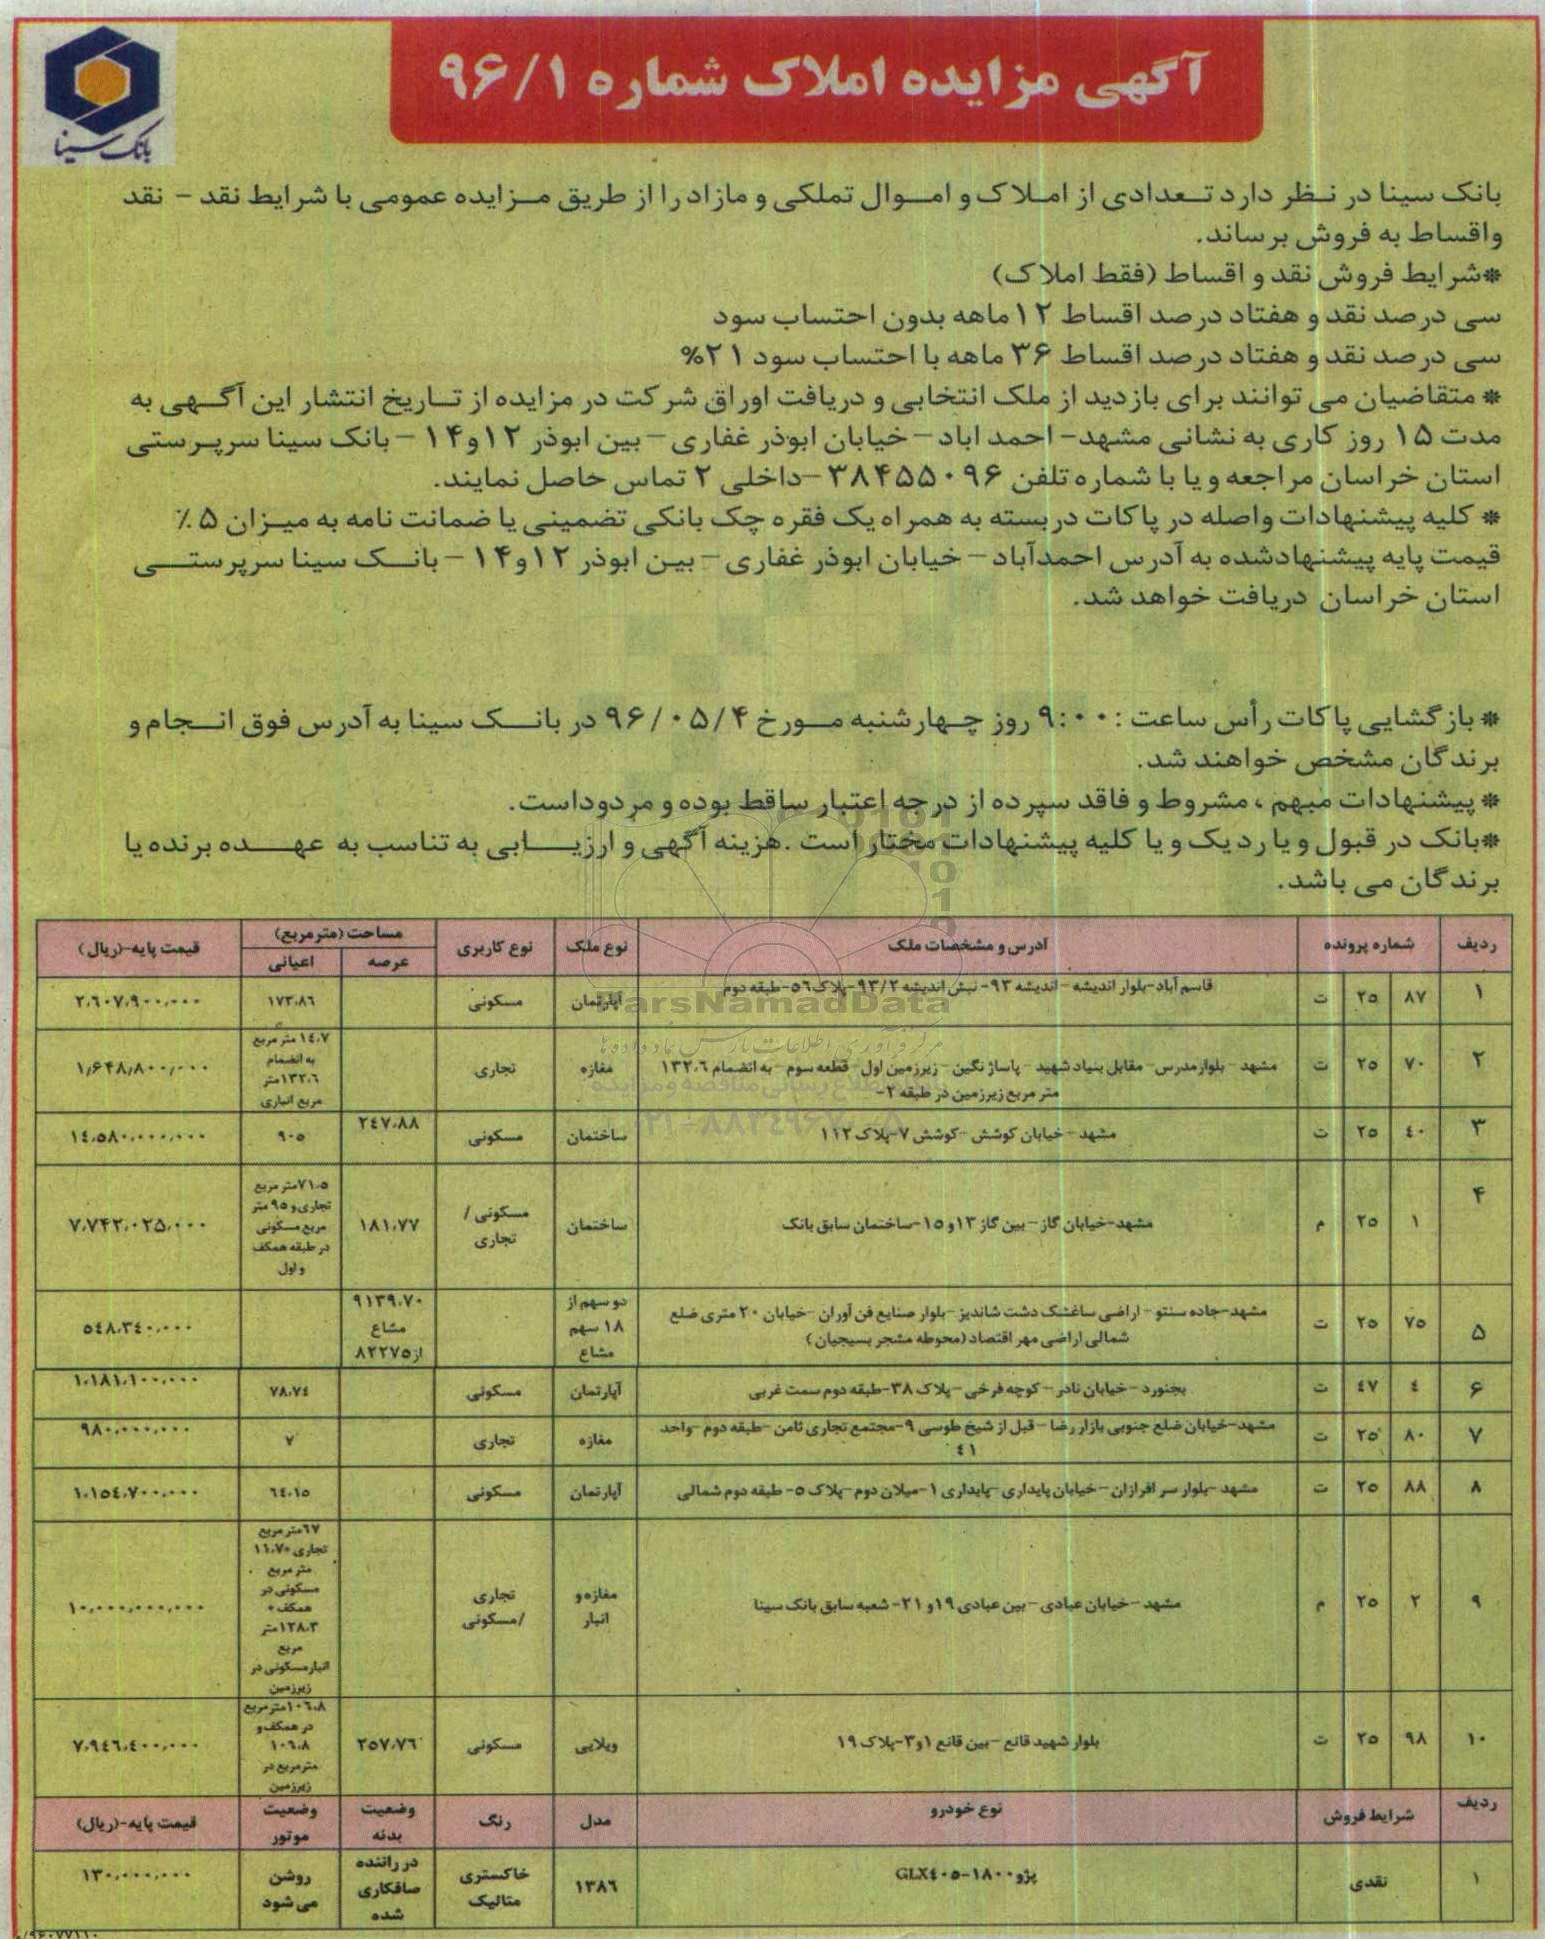 آگهی مزایده املاک شماره ۹۶/۱
بانک سینا
بانک سینا در نظر دارد تعدادی از املاک و اموال تملکی و مازاد را از طریق مزایده عمومی با شرایط نقد - نقد
واقساط به فروش برساند.
*شرایط فروش نقد و اقساط (فقط املاک)
سی درصد نقد و هفتاد درصد اقساط ۱۲ ماهه بدون احتساب سود
سی درصد نقد و هفتاد درصد اقساط ۳۶ ماهه با احتساب سود ۲۱%
* متقاضیان می توانند برای بازدید از ملک انتخابی و دریافت اوراق شرکت در مزایده از تاریخ انتشار این آگهی به
مدت ۱۵ روز کاری به نشانی مشهد- احمد اباد - خیابان ابوذر غفاری - بین ابوذر ۱۲و۱۴ - بانک سینا سرپرستی
استان خراسان مراجعه و یا با شماره تلفن ۳۸۴۵۵۰۹۶ -داخلی ۲ تماس حاصل نمایند.
* کلیه پیشنهادات واصله در پاکات دربسته به همراه یک فقره چک بانکی تضمینی یا ضمانت نامه به میزان ۵ ٪
قیمت پایه پیشنهادشده به آدرس احمدآباد - خیابان ابوذر غفاری - بین ابوذر ۱۲و۱۴ - بانک سینا سرپرستی
استان خراسان دریافت خواهد شد.
* بازگشایی پاکات رأس ساعت : ۹:۰۰ روز چهارشنبه مورخ ۹۶/۰۵/۴ در بانک سینا به آدرس فوق انجام و
برندگان مشخص خواهند شد.
* پیشنهادات مبهم ، مشروط و فاقد سپرده از درجه اعتبار ساقط بوده و مردوداست.
*بانک در قبول و یا رد یک و یا کلیه پیشنهادات مختار است .هزینه آگهی و ارزیابی به تناسب به عهده برنده یا
برندگان می باشد.
ردیف شماره پرونده آدرس و مشخصات ملک نوع ملک نوع کاربری مساحت (مترمربع) قیمت پایه-(ریال)
عرصه اعیانی
۱ ۸۷ ۲۵ ت قاسم آباد-بلوار اندیشه - اندیشه ۹۳- نبش اندیشه ۹۳/۲-پلاک۵۶-طبقه دوم آپارتمان مسکونی ۱۷۳،۸۶ ۲،۶۰۷،۹۰۰،۰۰۰
۲ ۷۰ ۲۵ ت مشهد - بلوارمدرس- مقابل بنیاد شهید - پاساژ نگین - زیرزمین اول- قطعه سوم - به انضمام ۱۳۲،۶
متر مربع زیرزمین در طبقه ۲- مغازه تجاری
۱۴،۷ متر مربع
به انضمام
۱۳۲،۶متر
مربع انباری
۱،۶۴۸،۸۰۰،۰۰۰
۳ ۴۰ ۲۵ ت مشهد - خیابان کوشش -کوشش ۷-پلاک ۱۱۲ ساختمان مسکونی ۲۴۷،۸۸ ۹۰۵ ۱۴،۵۸۰،۰۰۰،۰۰۰
۴ ۱ ۲۵ م مشهد-خیابان گاز - بین گاز ۱۳و ۱۵-ساختمان سابق بانک ساختمان مسکونی /
تجاری ۱۸۱،۷۷
۷۱،۵متر مربع
تجاری و ۹۵ متر
مربع مسکونی
در طبقه همکف
و اول
۷،۷۴۲،۰۲۵،۰۰۰
۵ ۷۵ ۲۵ ت مشهد-جاده سنتو - اراضی ساغشک دشت شاندیز -بلوار صنایع فن آوران -خیابان ۲۰ متری ضلع
شمالی اراضی مهر اقتصاد (محوطه مشجر بسیجیان )
دو سهم از
۱۸ سهم
مشاع
۹۱۳۹،۷۰
مشاع
از۸۲۲۷۵
۵۴۸،۳۴۰،۰۰۰
۶ ۴ ۴۷ ت بجنورد - خیابان نادر - کوچه فرخی - پلاک ۳۸-طبقه دوم سمت غربی آپارتمان مسکونی ۷۸،۷۴ ۱،۱۸۱،۱۰۰،۰۰۰
۷ ۸۰ ۲۵ ت مشهد-خیابان ضلع جنوبی بازار رضا - قبل از شیخ طوسی ۹-مجتمع تجاری ثامن -طبقه دوم -واحد
۴۱ مغازه تجاری ۷ ۹۸۰،۰۰۰،۰۰۰
۸ ۸۸ ۲۵ ت مشهد -بلوار سرافرازان - خیابان پایداری -پایداری ۱-میلان دوم -پلاک ۵- طبقه دوم شمالی آپارتمان مسکونی ۶۴،۱۵ ۱،۱۵۴،۷۰۰،۰۰۰
۹ ۲ ۲۵ م مشهد -خیابان عبادی - بین عبادی ۱۹و ۲۱- شعبه سابق بانک سینا مغازه و
انبار تجاری
/مسکونی
۶۷متر مربع
تجاری +۱۱،۷
متر مربع
مسکونی در
همکف +
۱۲۸،۳متر
مربع
انبارمسکونی در
زیرزمین
۱۰،۰۰۰،۰۰۰،۰۰۰
۱۰ ۹۸ ۲۵ ت بلوار شهید قانع - بین قانع ۱و۳-پلاک ۱۹ ویلایی مسکونی ۲۵۷،۷۶
۱۰۶،۸مترمربع
در همکف و
۱۰۶،۸
مترمربع در
زیرزمین
۷،۹۴۶،۴۰۰،۰۰۰
ردیف شرایط فروش نوع خودرو مدل رنگ وضعیت
بدنه وضعیت
موتور قیمت پایه-(ریال)
۱ نقدی پژو ۱۸۰۰-GLX۴۰۵ ۱۳۸۶ خاکستری
متالیک
در راننده
صافکاری
شده
روشن
می شود
۱۳۰،۰۰۰،۰۰۰
ParsNamadData
مرکز فرآوری اطلاعات پارس نماد داده ها